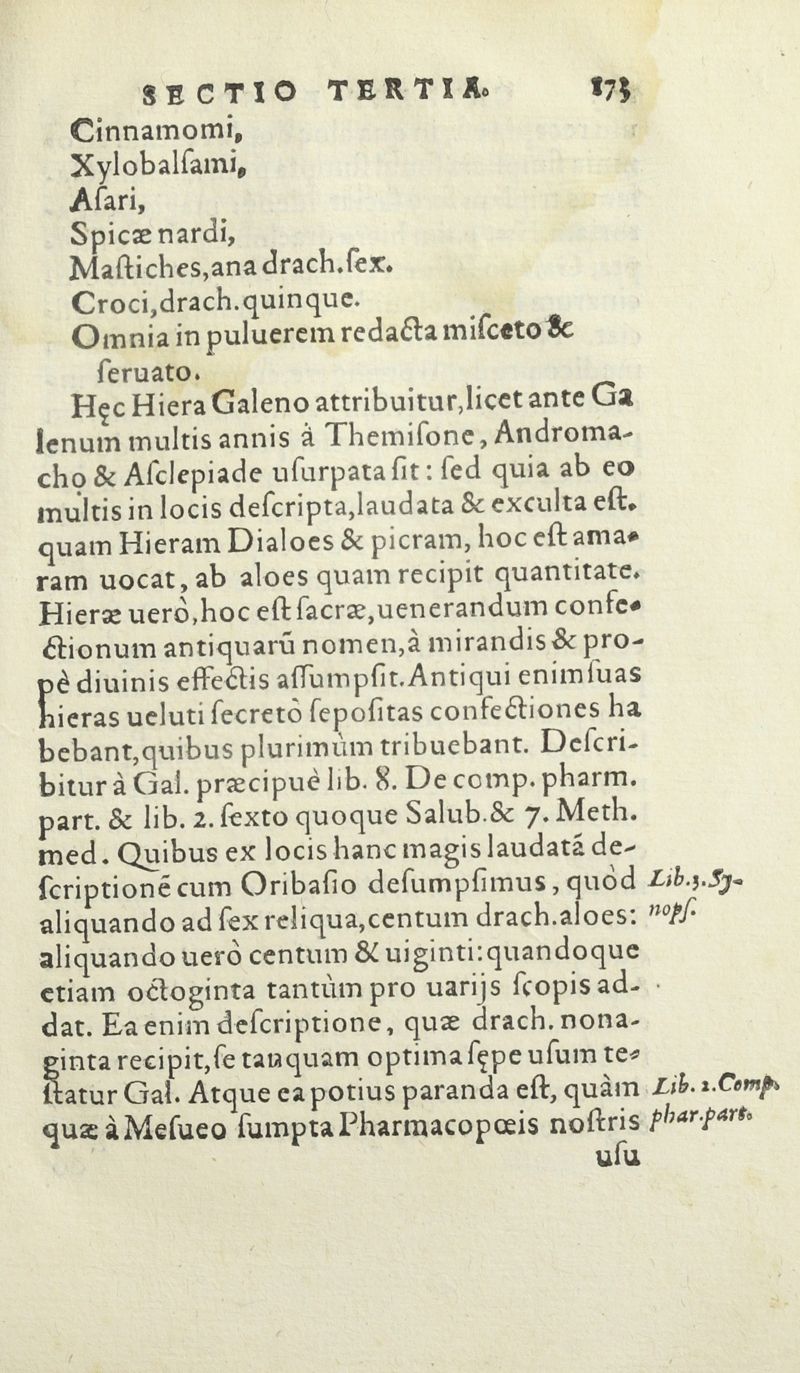 SECTIO TERTIA. 173
Cinnamomi,
Xylobalſami,
Aſari,
Spicæ nardi,
Maſtiches,ana drach.ſex.
Croci,drach.quinque.
Omnia in puluerem redacta miſceto &
ſeruato.
Hęc Hiera Galeno attribuitur,licet ante Ga
lenum multis annis à Themiſone, Androma-
cho & Aſclepiade uſurpata ſit: ſed quia ab eo
multis in locis deſcripta,laudata & exculta eſt.
quam Hieram Dialoes & picram, hoc eſt ama-
ram uocat, ab aloes quam recipit quantitate.
Hieræ uerò,hoc eſt ſacræ,uenerandum confe-
ctionum antiquarū nomen,à mirandis & pro-
pè diuinis effectis aſſumpſit.Antiqui enim ſuas
hieras ueluti ſecretò ſepoſitas confectiones ha
bebant,quibus plurimùm tribuebant. Deſcri-
bitur à Gal. præcipuè lib. 8. De comp. pharm.
part. & lib. 2. ſexto quoque Salub.& 7. Meth.
med. Quibus ex locis hanc magis laudatā de-
ſcriptionē cum Oribaſio deſumpſimus, quòd Lib.3.Sy-
aliquando ad ſex reliqua,centum drach.aloes: nopſ.
aliquando uerò centum & uiginti:quandoque
etiam octoginta tantùm pro uarijs ſcopis ad-
dat. Ea enim deſcriptione, quæ drach. nona-
ginta recipit,ſe tanquam optima ſępe uſum te-
ſtatur Gal. Atque ea potius paranda eſt, quàm Lib. 2.Comp.
quæ à Meſueo ſumpta Pharmacopœis noſtris phar.part.
uſu